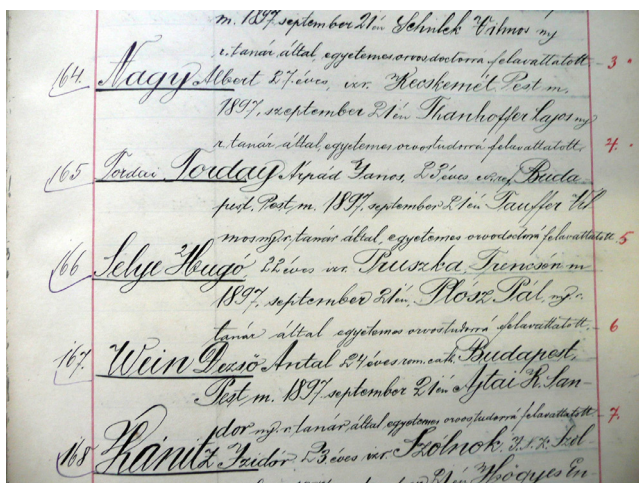 m. 1897. september 21én Schulek Vilmos ny
r. tanár által, egyetemes orvosdoctorrá felavattatott 3.
164. Nagy Albert 27 éves, izr. Kecskemét Pest m.
1897. szeptember 21én Thanhoffer Lajos ny
r. tanár által, egyetemes orvostudorrá felavattatott. 4.
165 Tordai Torday Árpád János, 23 éves Buda-
pest, Pest m. 1897. september 21én Tauffer Vil
mos ny. r. tanár által, egyetemes orvosdoctorrá felavattatott. 5
166 Selye Hugó 22 éves izr. Pruszka, Trencsén m
1897. september 21én, Plósz Pál, ny. r.
tanár által egyetemes orvostudorrá felavattatott. 6
167. Wein Dezső Antal 24 éves rom. cath. Budapest,
Pest m. 1897 september 21én Ajtai K. San-
dor ny. r. tanár, által, egyetemes orvostudorrá felavattatott 7.
168 Kanitz Izidor 23 éves izr. Szolnok, J.N.K. Szol-
21én Hőgyes En-